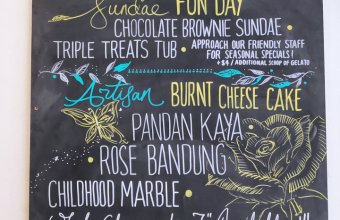 Sundae FUN DAY
CHOCOLATE BROWNIE SUNDAE
TRIPLE TREATS TUB • APPROACH OUR FRIENDLY STAFF
FOR SEASONAL SPECIALS!
+$4 / ADDITIONAL SCOOP OF GELATO
Artisan BURNT CHEESE CAKE
PANDAN KAYA •
• ROSE BANDUNG
CHILDHOOD MARBLE